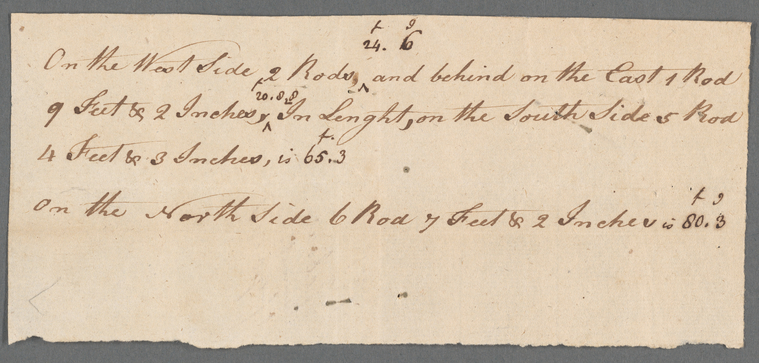 f I
24. 6
On the West Side, 2 Rods ^ and behind on the East 1 Rod
f
20.8.8
9 Feet & 2 Inches, ^ In Lenght, on the South Side 5 Rod
f.
4 Feet & 3 Inches, is 65.3
f I
On the North Side 6 Rod 7 Feet & 2 Inches is 80.3